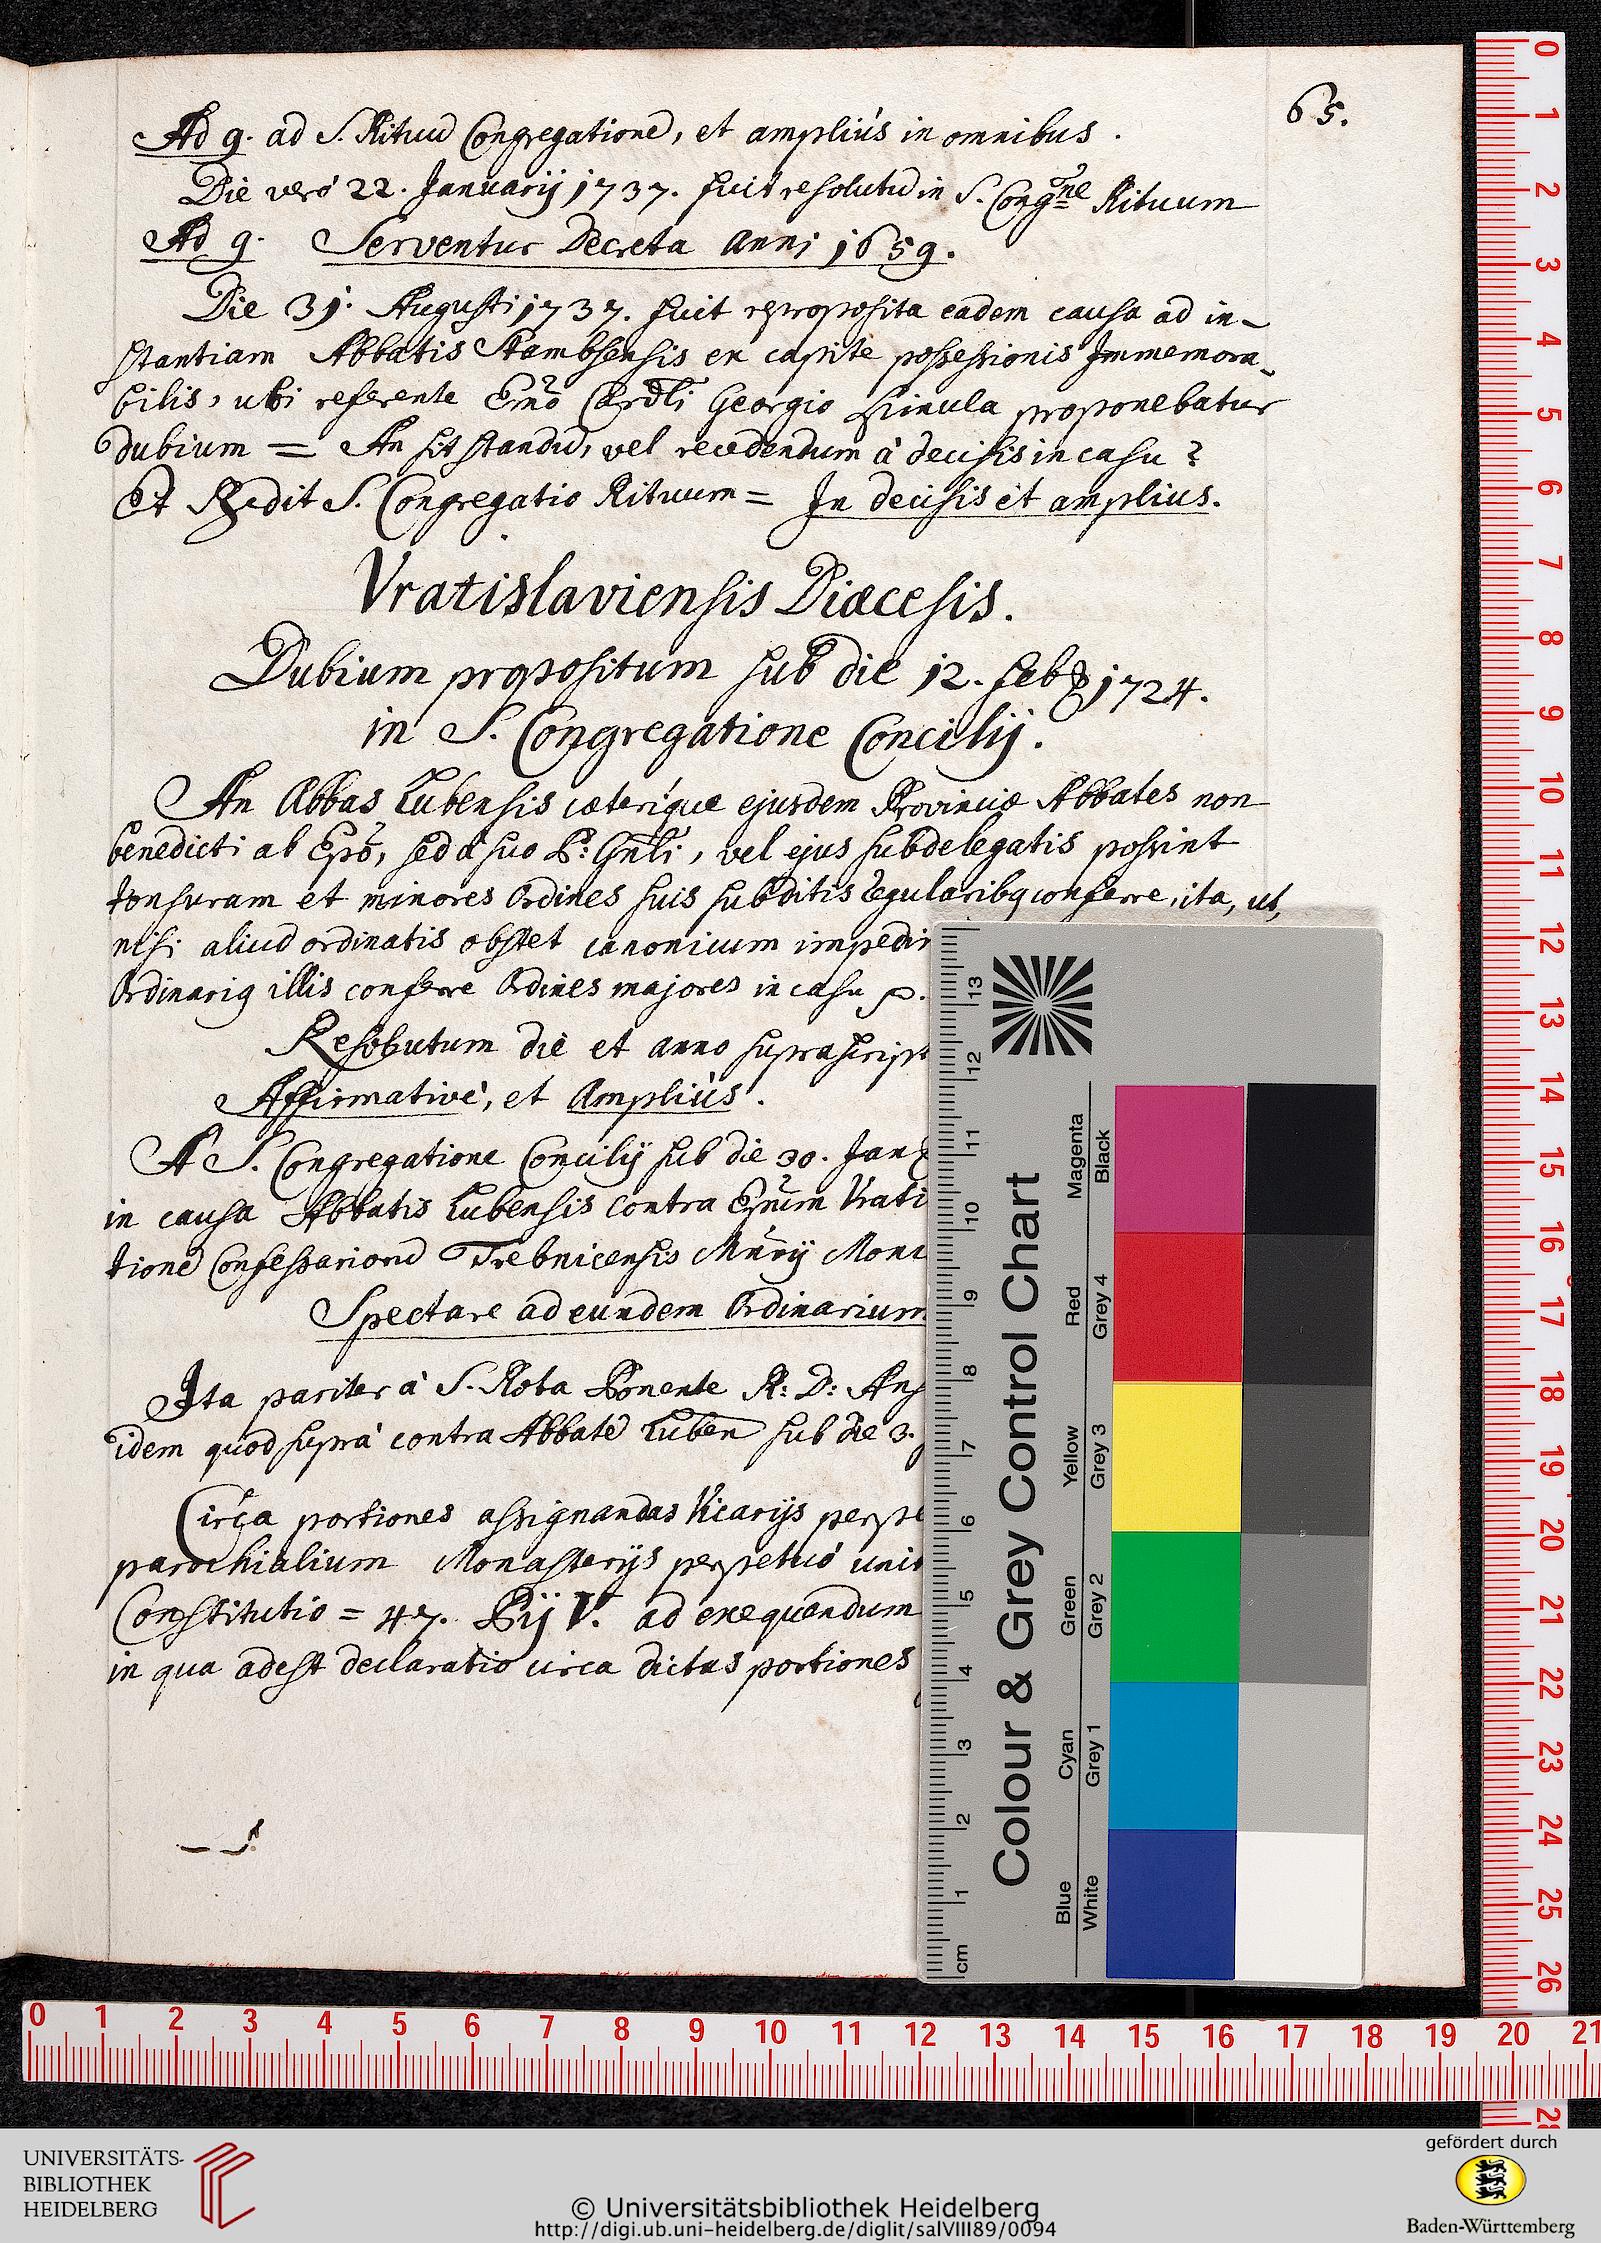 65.
Ad 9. ad S. Rituũ Congregationẽ, et ampliùs in omnibus.
Die verò 22. Januarij 1737. fuit resolutũ in S. Congne Rituum
Ad 9. Serventur Decreta anni 1659.
Die 31. Augusti 1737. fuit reproposita eadem causa ad in-
stantiam Abbatis Stambsensis ex capite possessionis Immemora-
bilis, ubi referente Emo Cardli Georgio proponebatur
Dubium = An sit standũ, vel recedendum à decisis in casu?
Et S. Congregatio Rituum = In decisis et amplius.
Vratislaviensis Diœcesis.
Dubium propositum sub die 12. feb 1724.
in S. Congregatione Concilij.
An Abbas Lubensis cæteriq́ue ejusdem Provinciæ Abbates non
benedicti ab Epõ, sed à suo P: Gnĺi, vel ejus subdelegatis possint
tonsuram et minores Ordines suis subditis regularibq conferre, ita, ut,
nisi aliud ordinatis obstet canonicum impedi
Ordinariq illis conferre Ordines majores in casu p.
Resolutum die et anno suprascript
Affirmativè, et Ampliùs.
A S. Congregatione Concilij sub die 30. Jan
in causa Abbatis Lubensis contra Eṕum Vrati
tionẽ Confessariorũ Trebnicensis Mnrij Moni
Spectare ad eundem Ordinarium
Ita pariter à S. Rota Ponente R: D: Ans
idem quod suprà contra Abbatẽ Luben sub die 3.
Circa portiones assignandas Vicarijs perpe
parochialium Monasterijs perpetuò unit
Constitutio = 47. Pij V. ad exequendum
in qua adest declaratio circa dictas portiones
Colour & Grey Control Chart
Magenta
Black
Red
Grey 4
Yellow
Grey 3
Green
Grey 2
Cyan
Grey 1
Blue
White
cm 1 2 3 4 5 6 7 8 9 10 11 12 13
0 1 2 3 4 5 6 7 8 9 10 11 12 13 14 15 16 17 18 19 20 21 22 23 24 25 26 28
0 1 2 3 4 5 6 7 8 9 10 11 12 13 14 15 16 17 18 19 20 21
UNIVERSITÄTS-
BIBLIOTHEK
HEIDELBERG
© Universitätsbibliothek Heidelberg
http://digi.ub.uni-heidelberg.de/diglit/salVIII89/0094
gefördert durch
Baden-Württemberg